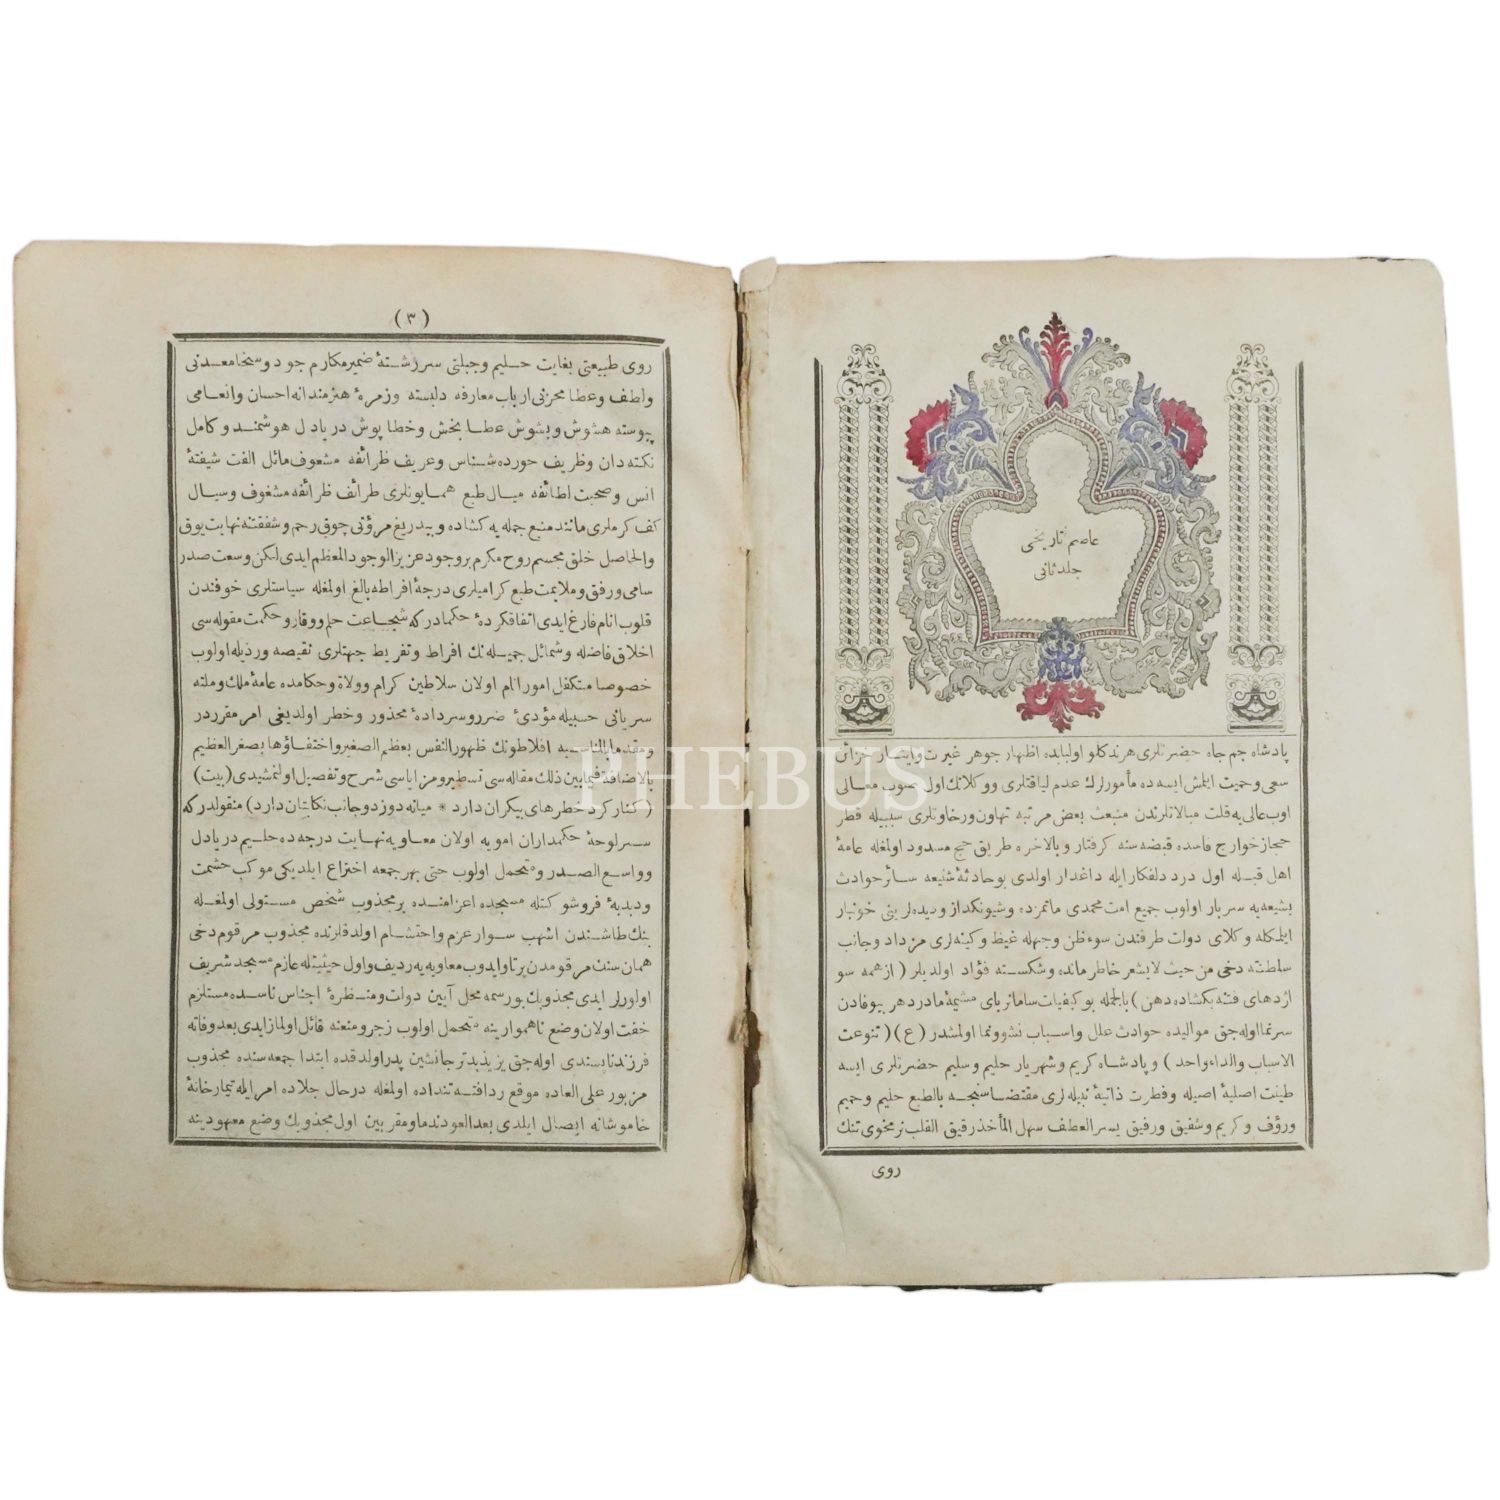 عاصم تاریخی
جلد ثانی
پادشاه جم جاه حضرتلری هرند کلو اولبابده اظهار جوهر غیرت وایثار خزائن
سعی وحمیت ایلمش ایسه ده مأمورلرك عدم لیاقتلری ووکلانك اول صوب معالی
اوب عالی یه قلت مبالاتلرندن منبعث بعض مرتبه تهاون ورخاوتلری سببیله قطر
حجاز خوارج فاسده قبضه سنه کرفتار و بالاخره طریق حج مسدود اولمغله عامهٔ
اهل قبله اول درد دلفکار ایله داغدار اولدی بو حادثهٔ شنیعه سائر حوادث
بشیعه یه سربار اولوب جمیع امت محمدی ماتمزده وشیونکداز ودیده لرینی خونبار
ایلمکله وکلای دولت طرفندن سوء ظن وجهله غیظ وکینه لری مزداد وجانب
سلطنته دخی من حیث لایشعر خاطر مانده وشکسته فؤاد اولدیلر ( از همه سو
اژدهای فتنه بکشاده دهن ) بالجمله بو کیفیات سامانربای مشیمهٔ مادر دهر بیوفادن
سرنما اوله جق موالیده حوادث علل واسباب نشوونما اولمشدر ( ع ) ( تنوعت
الاسباب والداء واحد ) و پادشاه کریم وشهریار حلیم وسلیم حضرتلری ایسه
طینت اصلیهٔ اصیله وفطرت ذاتیهٔ نبیله لری مقتضاسنجه بالطبع حلیم وحمیم
ورؤف وکریم وشفیق ورفیق یسر العطف سهل المأخذ رقیق القلب نرمخوی تنك
روی
( ۳ )
روی طبیعتی بغایت حلیم وجبلتی سرزشتهٔ ضمیر مکارم جود وسخا معدنی
ولطف وعطا مخزنی ارباب معارفه دلبسته وزمرهٔ هنرمندانه احسان وانعامی
پیوسته هشوش وبشوش عطا بخش وخطا پوش دریا دل هوشمند وکامل
نکته دان وظریف خورده شناس وعریف ظرائفه مشعوف مائل الفت شیفتهٔ
انس وصحبت لطائفه میال طبع همایونلری طرائف ظرائفه مشغوف وسیال
کف کرملری مانند منبع جمله یه کشاده وبیدریغ مروّتی چوق رحم وشفقتنه نهایت یوق
والحاصل خلق مجسم روح مکرم بر وجود عزیز الوجود المعظم ایدی لکن وسعت صدر
سامی ورفق وملایمت طبع کرامیلری درجهٔ افراطه بالغ اولمغله سیاستلری خوفندن
قلوب انام فارغ ایدی اتفاقکردهٔ حکمادر که شجاعت حلم ووقار وحکمت مقوله سی
اخلاق فاضله وشمائل جمیله نك افراط وتفریط جهتلری نقیصه ورذیله اولوب
خصوصا متکفل امور انام اولان سلاطین کرام وولاة وحکامده عامهٔ ملك وملته
سریانی حسبیله مؤدیٔ ضرر وسردادهٔ محذور وخطر اولدیغی امر مقرردر
ومقدما بالمناسبه افلاطونك ظهور النفس بعظم الصغیر واختفاؤها بصغر العظیم
بالاضافة فیما بین ذلك مقاله سی تسطیر ومزایاسی شرح وتفصیل اولنمشیدی ( بیت )
( کنار کرد خطرهای بیکران دارد * میانه دوزد وجانب نکابتان دارد ) منقولدر که
سرلوحهٔ حکمداران امویه اولان معاویه نهایت درجه ده حلیم دریا دل
وواسع الصدر ومتحمل اولوب حتی بهر جمعه اختراع ایلدیکی موکب حشمت
ودبدبه فروشو کتله مسجده اعزامنده بر مجذوب شخص مستولی اولمغله
بنك طاشندن اشهب سوار عزم واحتشام اولدقلرنده مجذوب مرقوم دخی
همان سنك مرقومدن پرتاو ایدوب معاویه یه ردیف واول حیثیتله عازم مسجد شریف
اولورلر ایدی مجذوبك بو رسمه مخل آیین دولت ومنظرهٔ اجناس ناسده مستلزم
خفت اولان وضع ناهموارینه متحمل اولوب زجر ومنعنه قائل اولمازایدی بعد وفاته
فرزند ناپسندی اوله جق یزید بدتر جانشین پدر اولدقده ابتدا جمعه سنده مجذوب
مزبور علی العاده موقع ردافته تنداده اولمغله در حال جلاده امر ایله تیمارخانهٔ
خاموشانه ایصال ایلدی بعد العود ندما ومقربین اول مجذوبك وضع معهودینه
PHEBUS